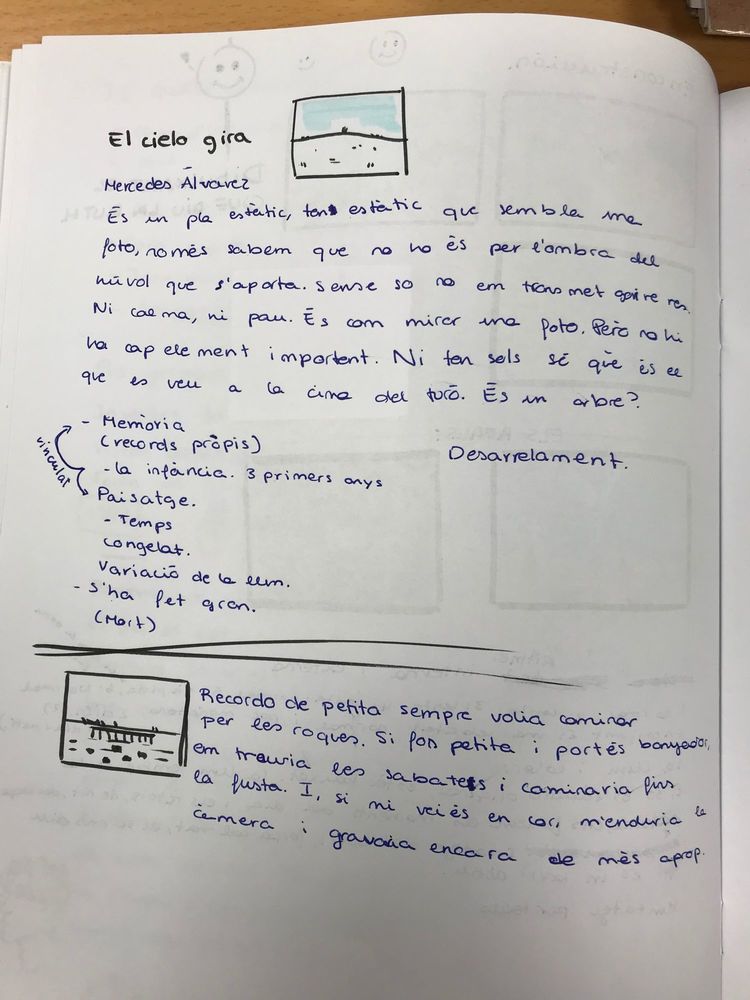 El cielo gira
Mercedes Álvarez
És un pla estàtic, tan estàtic que sembla una
foto, només sabem que no ho és per l'ombra del
núvol que s'aporta. Sense so no em transmet gaire res.
Ni calma, ni pau. És com mirar una foto. Però no hi
ha cap element important. Ni tan sols sé què és el
que es veu a la cima del turó. És un arbre?
- Memòria
(records pròpis)
- la infància. 3 primers anys
vinculat
Desarrelament.
Paisatge.
- Temps
congelat.
Variació de la llum.
- S'ha fet gran.
(Mort)
Recordo de petita sempre volia caminar
per les roques. Si fos petita i portés banyador,
em trauria les sabates i caminaria fins
la fusta. I, si mi veiés en cor, m'enduria la
càmera i gravaria encara de més aprop.